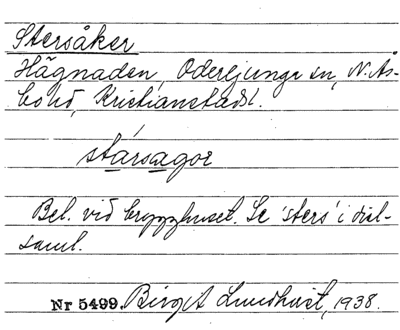 Stersåker
Hägnaden, Oderljunga sn, N. Ås-
bo hd, Kristianstads l.
stársagor
Bel. vid brygghuset. Se 'sters' i dial-
saml.
Nr 5499. Birgit Lundhust, 1938.